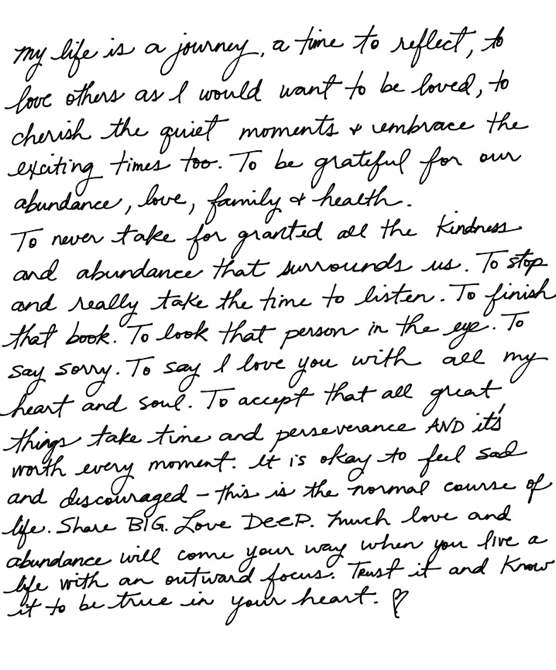 my life is a journey, a time to reflect, to
love others as I would want to be loved, to
cherish the quiet moments & embrace the
exciting times too. To be grateful for our
abundance, love, family & health.
To never take for granted all the kindness
and abundance that surrounds us. To stop
and really take the time to listen. To finish
that book. To look that person in the eye. To
say sorry. To say I love you with all my
heart and soul. To accept that all great
things take time and perseverance AND it's
worth every moment. It is okay to feel sad
and discouraged – this is the normal course of
life. Share BIG. Love DEEP. Much love and
abundance will come your way when you live a
life with an outward focus. Trust it and know
it to be true in your heart. ♡